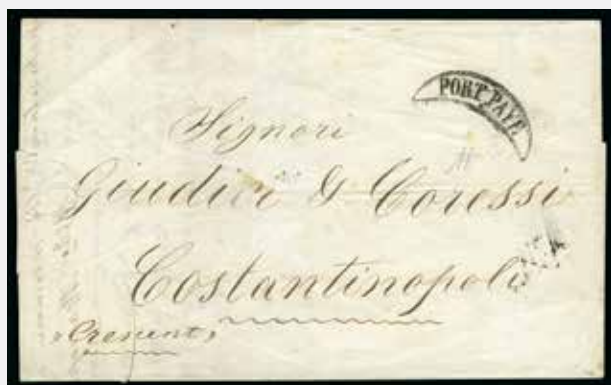 PORT PAYÉ
Signori
Giudici & Coressi
Costantinopoli
"Crescent"